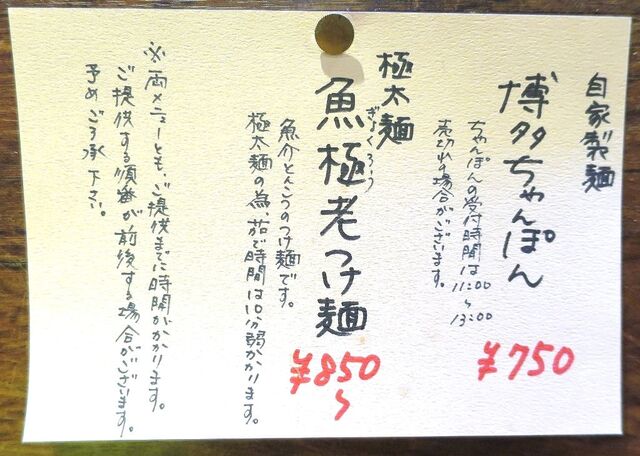 自家製麺
博多ちゃんぽん
ちゃんぽんの受付時間は11:00~13:00
売切れの場合がございます。
¥750
極太麺
魚極老つけ麺
ぎょくろう
魚介とんこつのつけ麺です。
極太麺の為、茹で時間は10分弱かかります。
¥850~
※両メニューとも、ご提供までに時間がかかります。
ご提供する順番が前後する場合がございます。
予めご了承下さい。